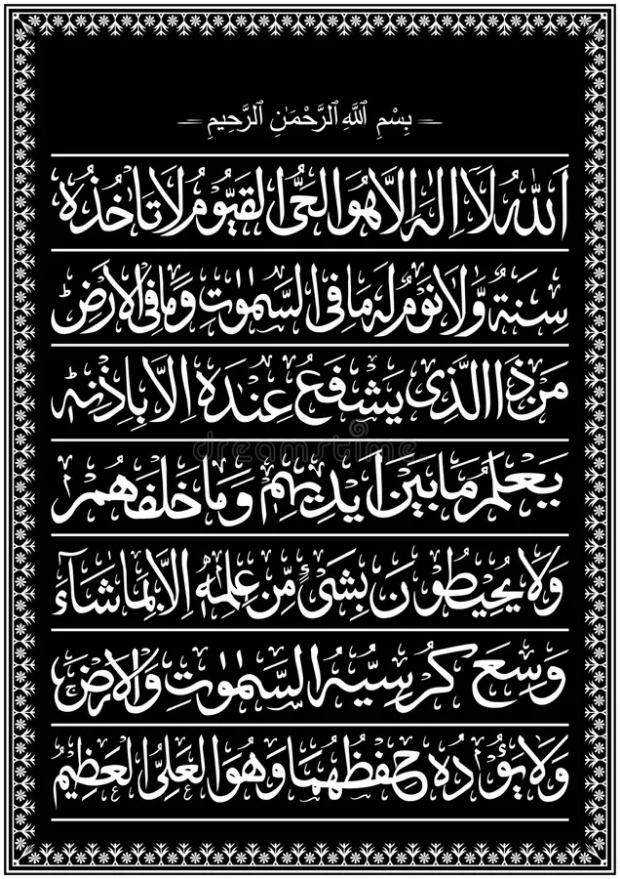 بِسْمِ ٱللَّهِ ٱلرَّحْمَٰنِ ٱلرَّحِيمِ
اَللّٰهُ لَاۤ اِلٰهَ اِلَّا هُوَ الْحَیُّ الْقَیُّوْمُ لَا تَاْخُذُهٗ
سِنَةٌ وَّلَا نَوْمٌ لَهٗ مَا فِی السَّمٰوٰتِ وَمَا فِی الْاَرْضِؕ
مَنْ ذَا الَّذِیْ یَشْفَعُ عِنْدَهٗۤ اِلَّا بِاِذْنِهٖؕ
یَعْلَمُ مَا بَیْنَ اَیْدِیْهِمْ وَمَا خَلْفَهُمْ
وَلَا یُحِیْطُوْنَ بِشَیْءٍ مِّنْ عِلْمِهٖۤ اِلَّا بِمَا شَآءَ
وَسِعَ كُرْسِیُّهُ السَّمٰوٰتِ وَالْاَرْضَ
وَلَا یَـُٔوْدُهٗ حِفْظُهُمَا وَهُوَ الْعَلِیُّ الْعَظِیْمُ
dreamstime